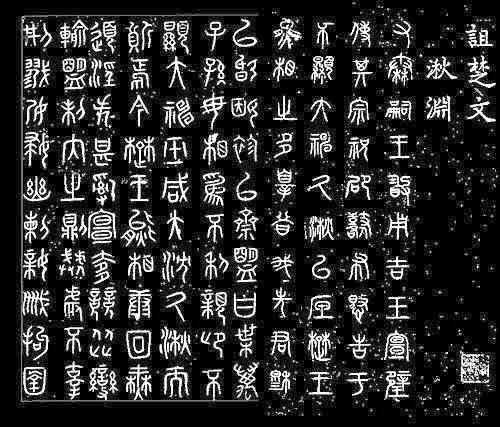 詛楚文
湫淵
又秦嗣王敢用吉玉宣璧
使其宗祝邵鼛布愍告于
不顯大神久湫以厎楚王
熊相之多辠昔我先君穆
以婚姻袗以齋盟曰枼萬
子孫毋相為不利親卬不
顯大神巫咸大沈久湫而
質焉今楚王熊相康回無
道淫失甚亂宣侈競從變
輸盟刺內之則虣虐不辜
刑戮孕婦幽刺親戚拘圉